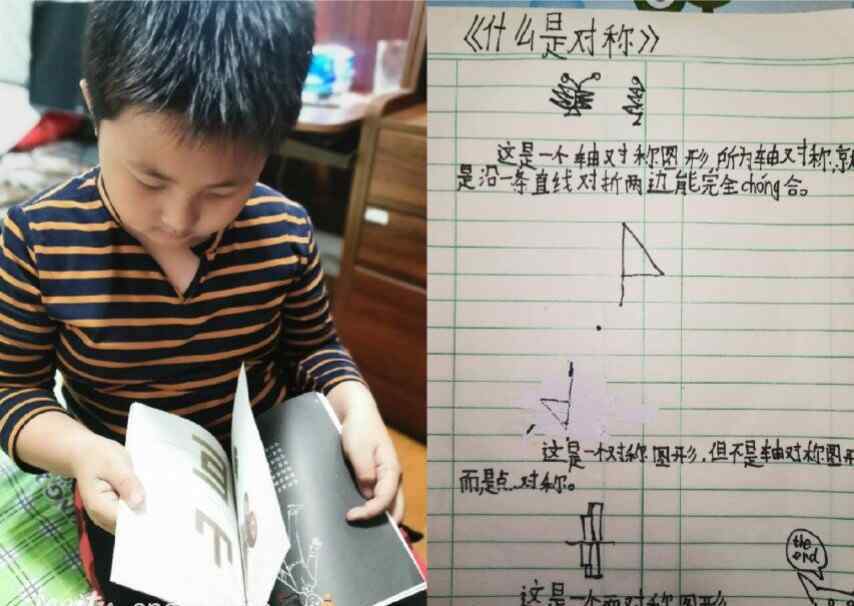 《什么是对称》
这是一个轴对称图形,所为轴对称,
是沿一条直线对折两边能完全chóng合。
这是一个对称图形,但不是轴对称图形
而是点对称。
the
end
这是一个面对称图形